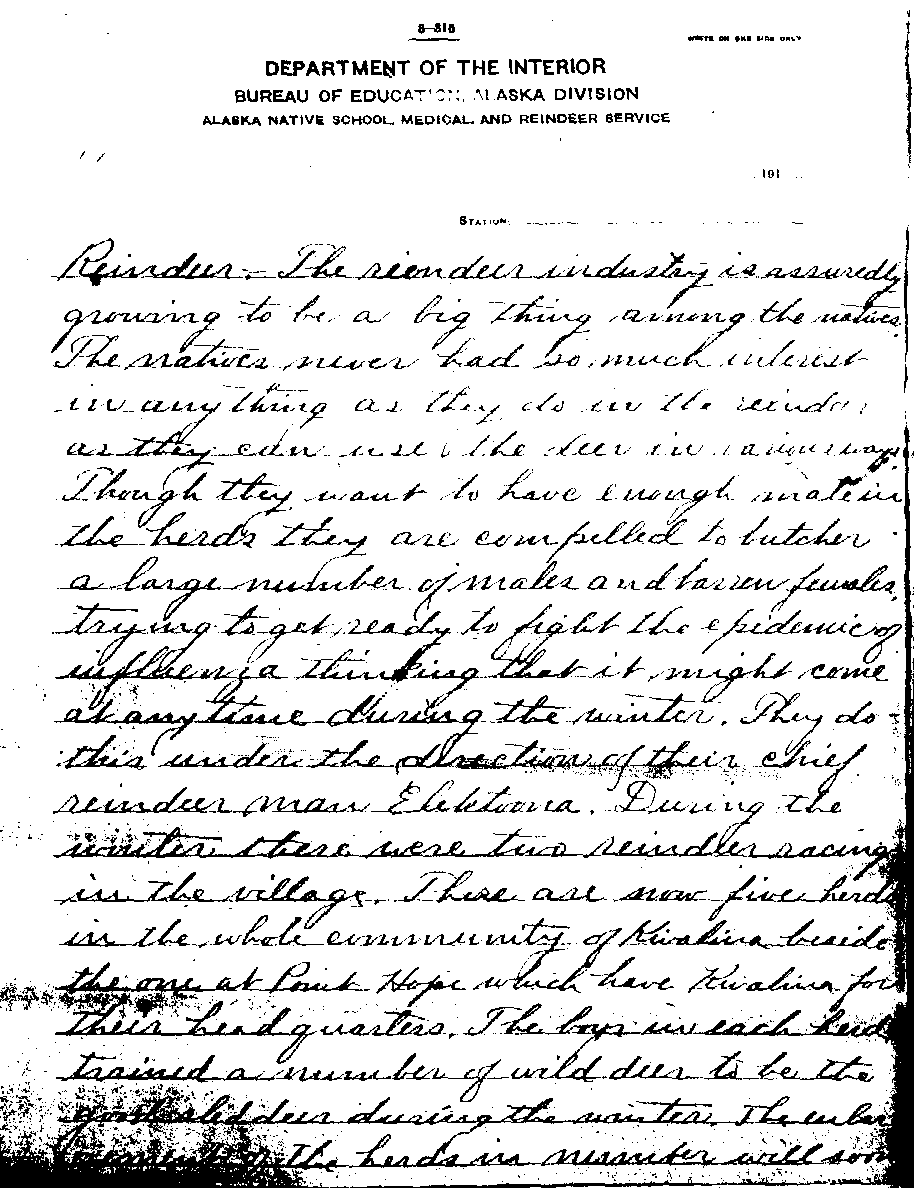 8-315
WRITE ON ONE SIDE ONLY
DEPARTMENT OF THE INTERIOR
BUREAU OF EDUCATION, ALASKA DIVISION
ALASKA NATIVE SCHOOL, MEDICAL, AND REINDEER SERVICE
191
STATION
Reindeer.- The riendeer industry is assuredly
growing to be a big thing among the natives.
The natives never had so much interest
in anything as they do in the reindeer
as they can use the deer in various ways.
Though they want to have enough mate in
the herds they are compelled to butcher
a large number of males and barren females,
trying to get ready to fight the epidemic of
influenza thinking that it might come
at anytime during the winter. They do
this under the direction of their chief
reindeer man Elektoona. During the
winter there were two reindeer racing
in the village. There are now five herds
in the whole community of Kivalina beside
the one at Point Hope which have Kivalina for
their head quarters. The boys in each herd
trained a number of wild deer to be the
good sled deer during the winter. The
the herds in number will soon